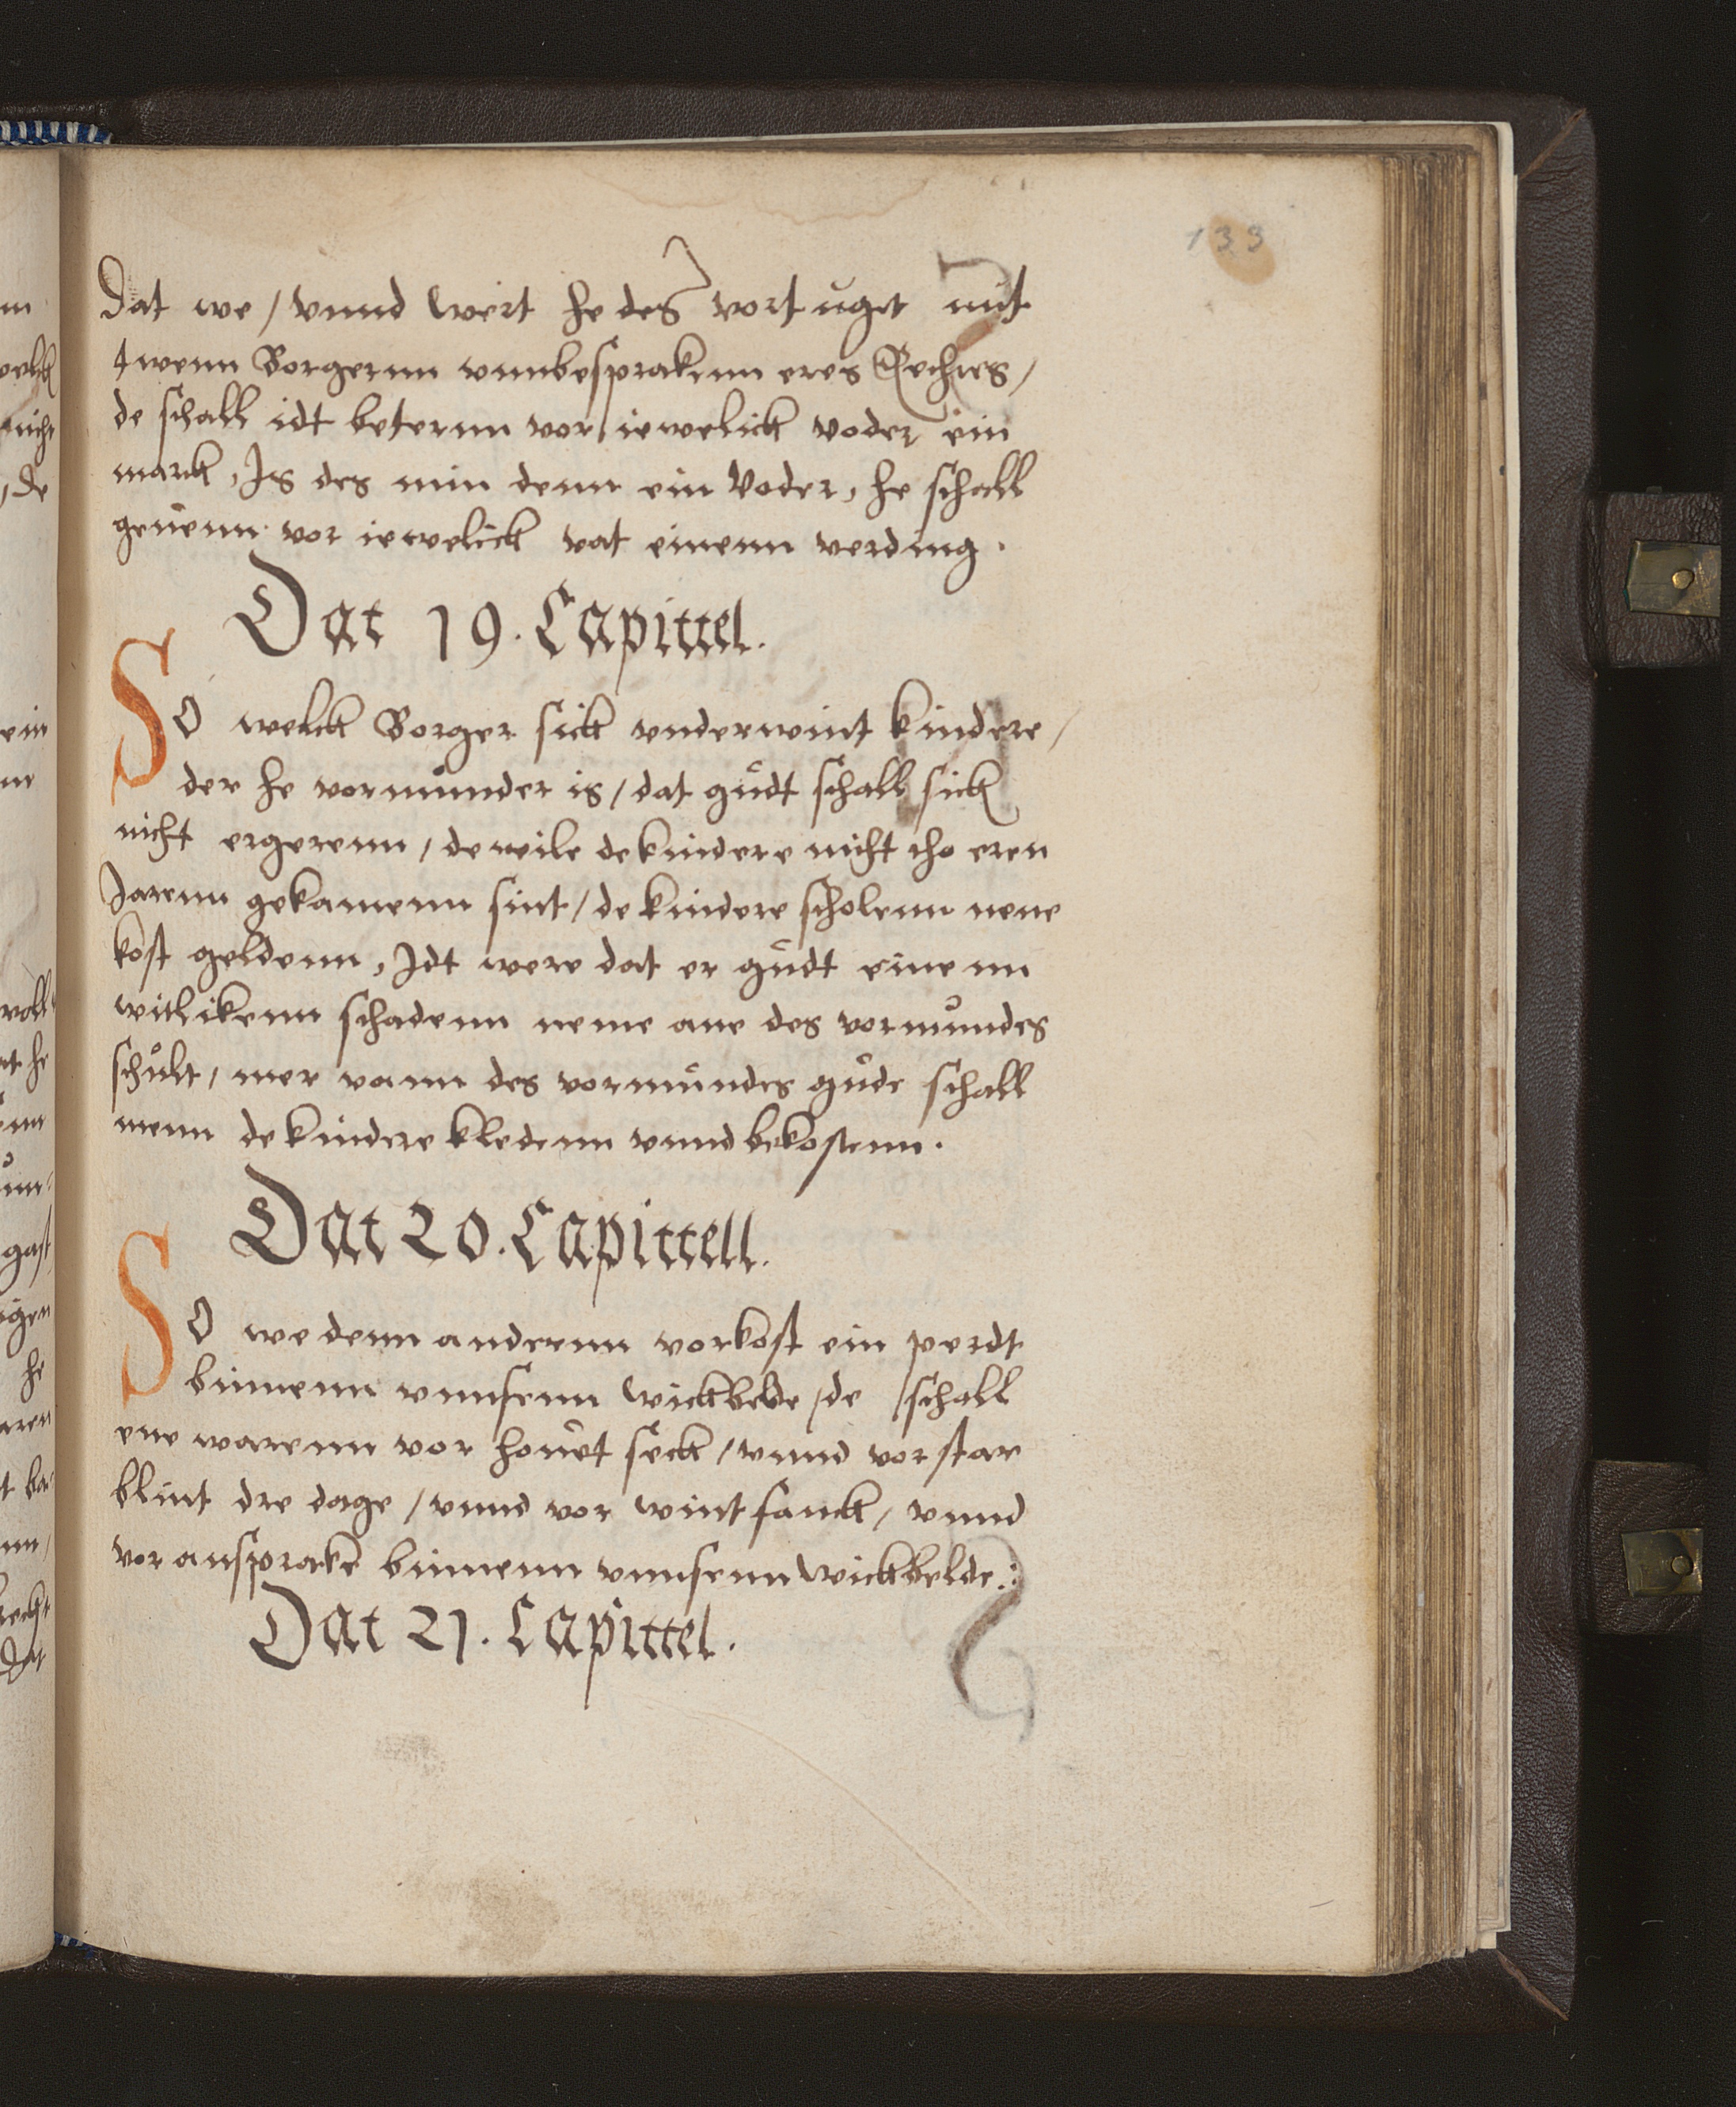 133
Dat we / vnnd wert he des vortuget mit
twenn Borgernn vnnbesprakenn eres Rechtes /
de schall idt beternn vor iewelick voder ein
marck, Is des min denn ein Voder, he schall
geuenn vor iewelick vat einenn verding.
Dat 19. Capittel.
So welck Borger sick vnderwint kindere /
der he vormůnder is / dat gůdt schall sick
nicht ergerenn / dewile de kindere nicht tho eren
Jarenn gekamenn sint / de kindere scholenn nene
kost geldenn, Idt were dat er gůdt einenn
witlikenn schadenn neme ane des vormůndes
schůlt / mer vann des vormůndes gůde schall
menn de kindere kledenn vnnd bekostenn.
Dat 20. Capittell.
So we denn anderenn vorkoft ein perdt
binnenn vnnsenn wickbelde / de schall
ene warenn vor houet seck / vnnd vor star
blint dre dage / vnnd vor wintfanck / vnnd
vor ansprake binnenn vnnsenn wickbelde.:
Dat 21. Capittel.